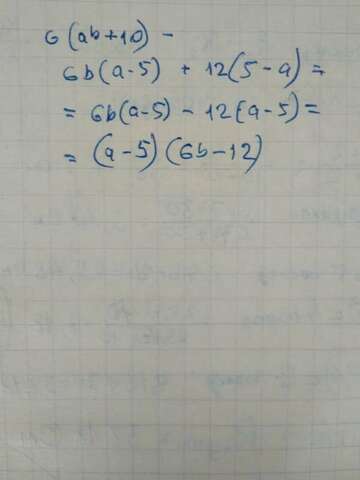 6(ab+10) -
6b(a-5) + 12(5-a) =
= 6b(a-5) - 12(a-5) =
= (a-5)(6b-12)